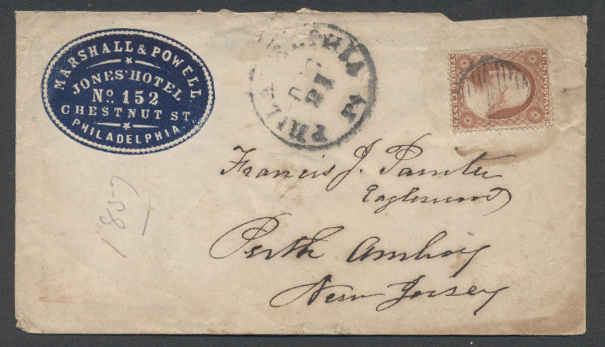 MARSHALL & POWELL
JONES' HOTEL
No. 152
CHESTNUT ST.
PHILADELPHIA.
PHILADELPHIA Pa
21
Francis J. Painter
Eagleswood
Perth Amboy
New Jersey
1857